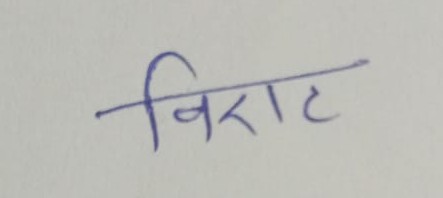 विराट